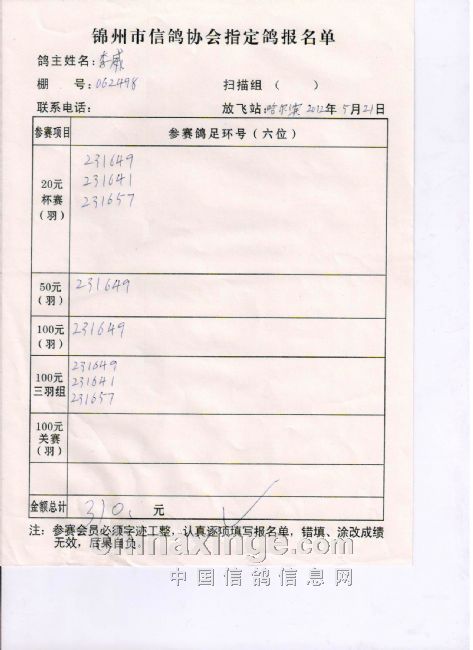 锦州市信鸽协会指定鸽报名单
鸽主姓名：李威
棚 号：062498 扫描组（ ）
联系电话： 放飞站：哈尔滨 2012年5月21日
参赛项目 参赛鸽足环号（六位）
20元
杯赛
（羽）
231649
231641
231657
50元
（羽）
231649
100元
（羽）
231649
100元
三羽组
231649
231641
231657
100元
美赛
（羽）
金额总计 310. 元
注：参赛会员必须字迹工整，认真逐项填写报名单，错填、涂改成绩
无效，后果自负
chinaxinge.com
中国信鸽信息网